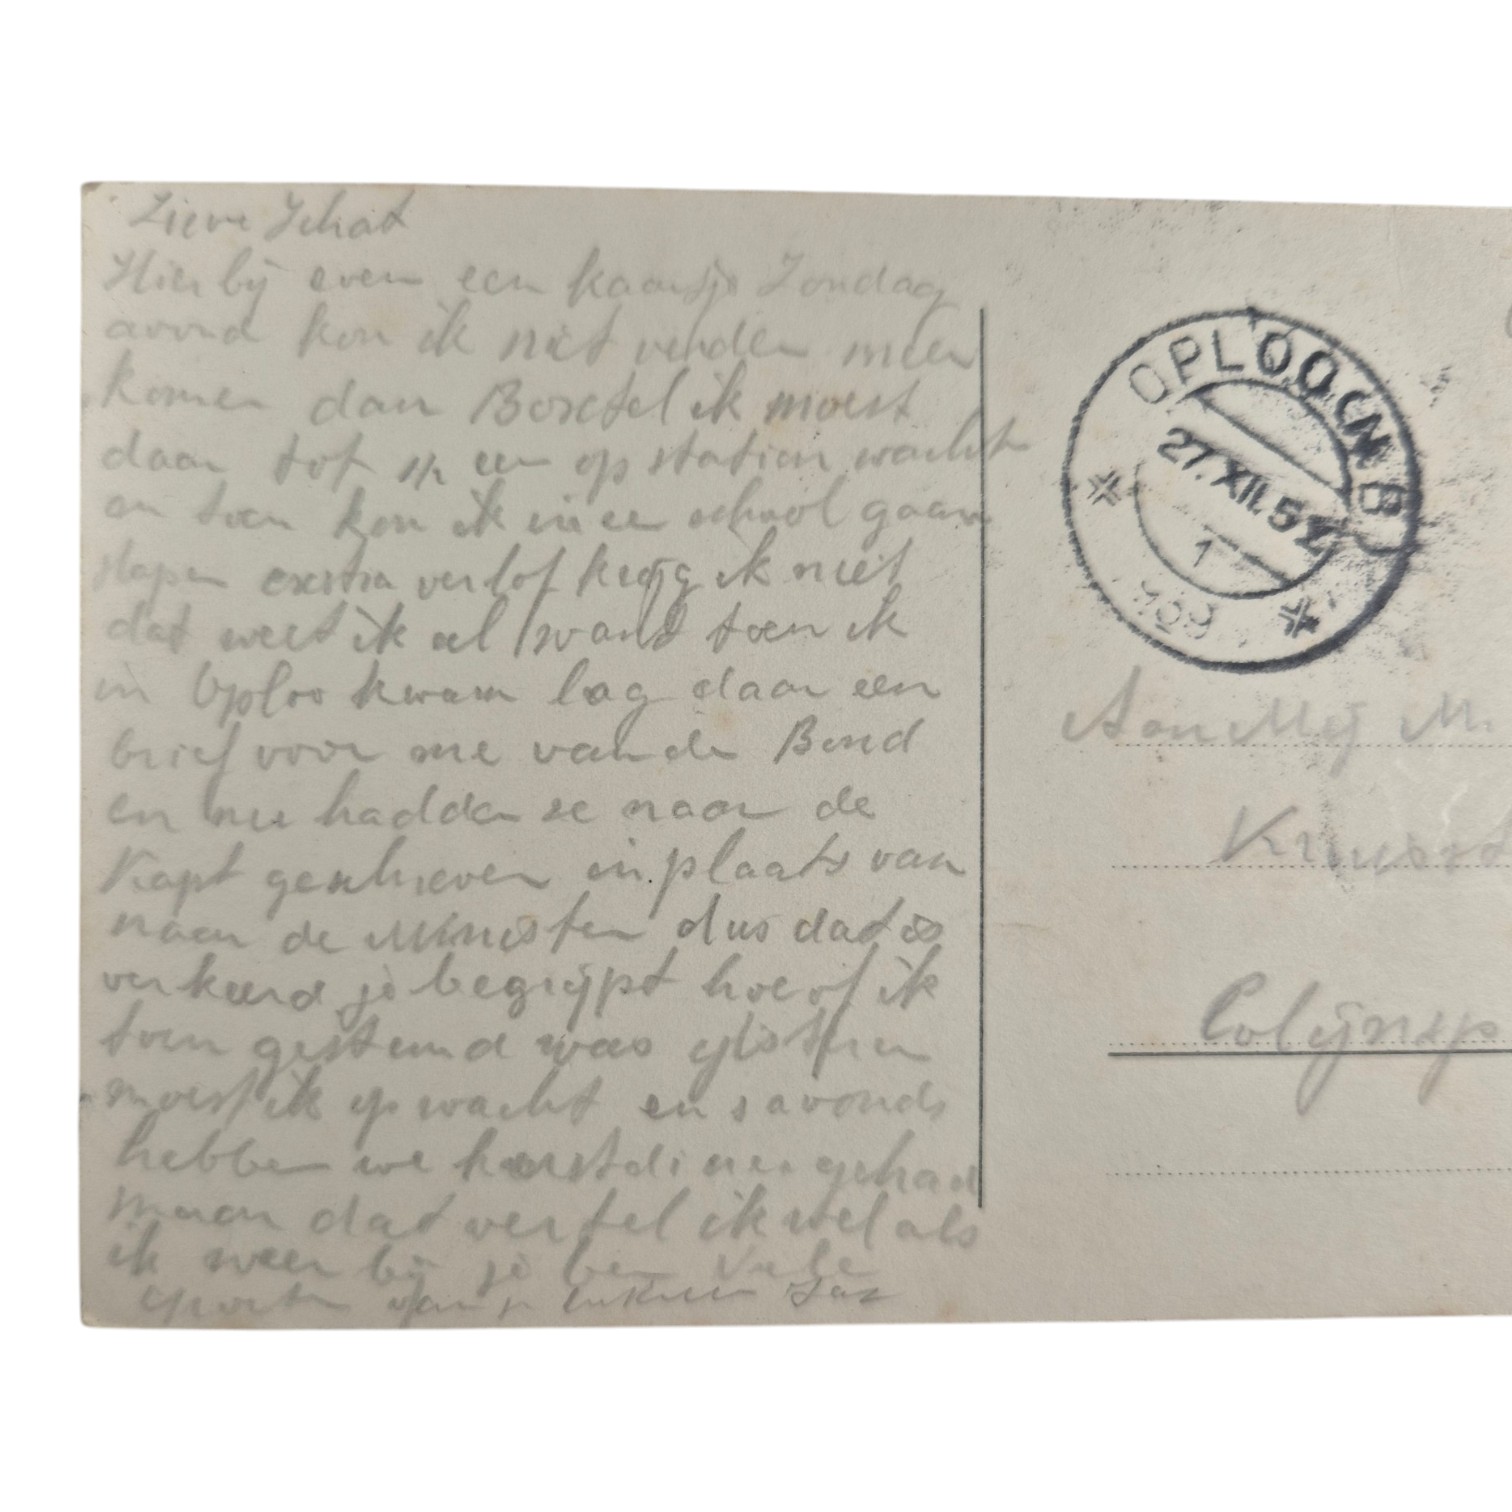 Lieve Schat
Hierbij even een kaartje Zondag
avond kon ik niet verder meer
komen dan Boxtel ik moest
daar tot een op station wacht
en toen kon ik in ee school gaan
slapen exstra verlof krijg ik niet
dat weet ik al want toen ik
in Oploo kwam lag daar een
brief voor me van de Bond
en nu hadden ze naar de
Kapt geschreven in plaats van
naar de Minister dus dat is
verkeerd je begrijpt hoe of ik
toen gestemd was gisteren
moest ik op wacht en s avonds
hebben we kerstdiner gehad
maar dat vertel ik wel als
ik weer bij je ben Vele
groeten van je Jac
OPLOO (N B)
27.XII.5
1
Aan Mej M.
Colijnsp